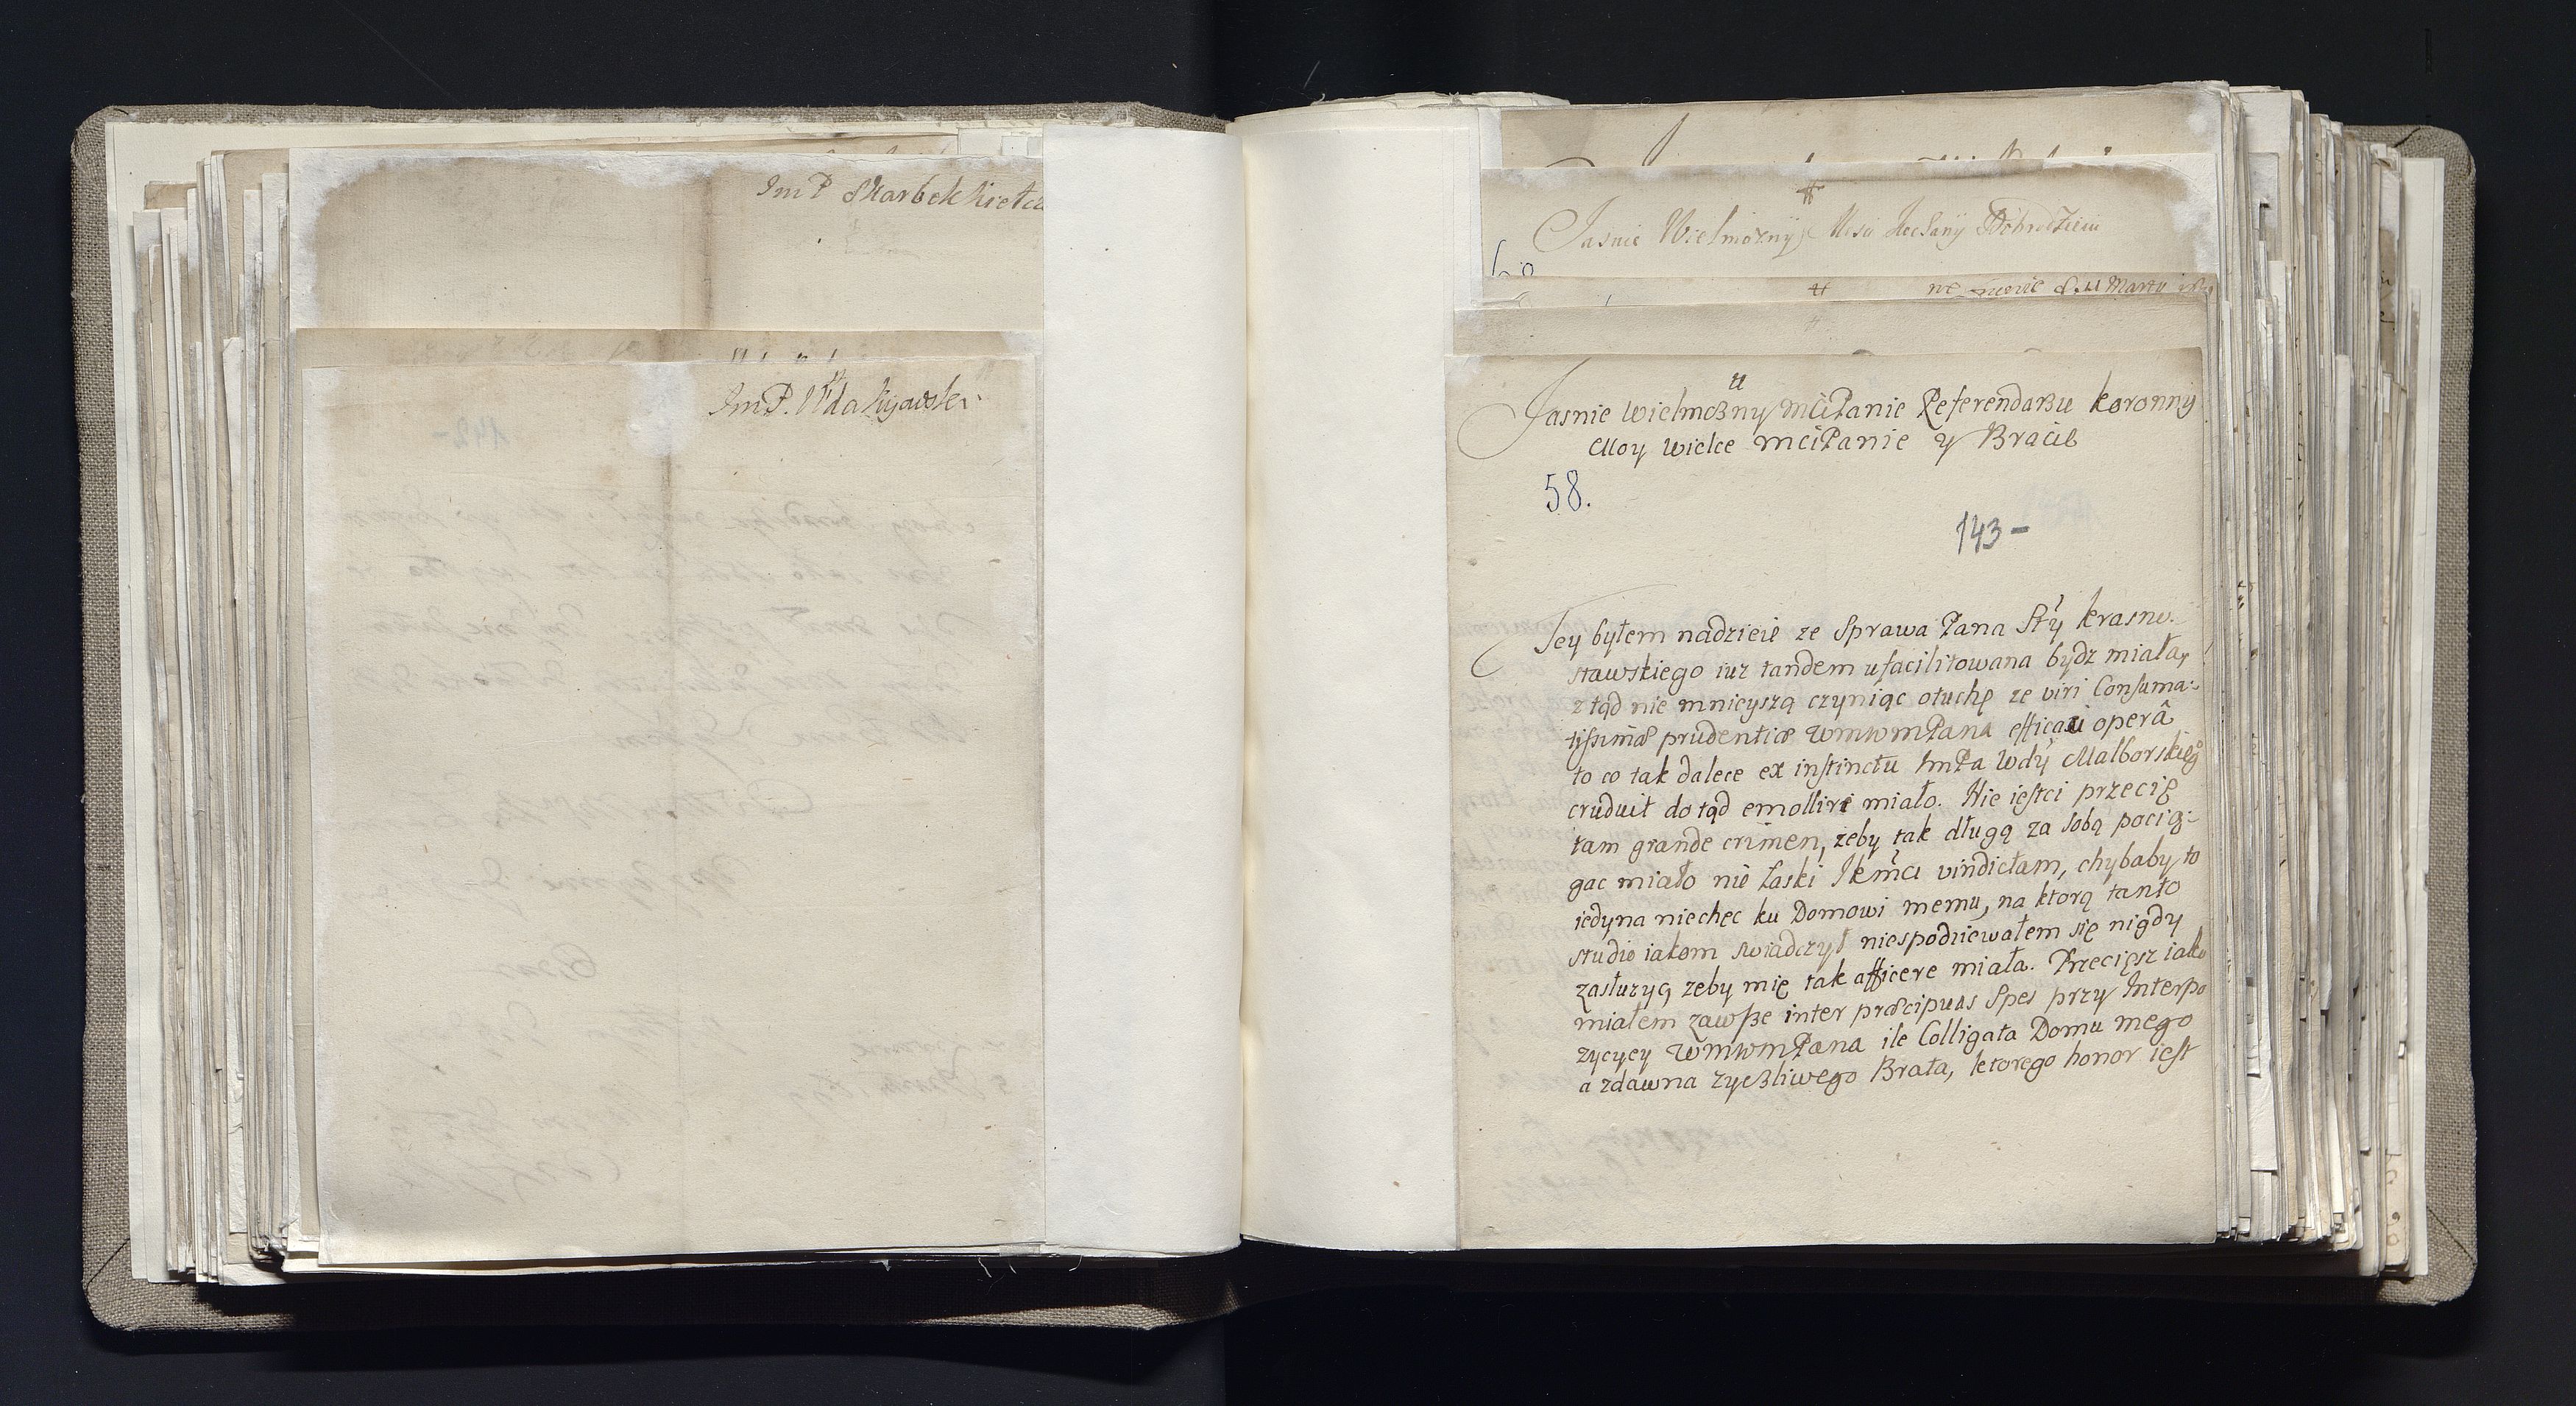 ImP Skarbek Kielcz
ImP.
Jasnie Wielmożny Dobrodzieiu
Martii
Jasnie Wielmożny MciPanie Referendarzu koronny
Moy wielce mciPanie y Bracie
58.
143-
Tey byłem nadzieie ze Sprawa Pana Sty krasno-
stawskiego iuz tandem ufacilitowana bydz miała,
z tąd nie mnieyszą czyniąc otuchę ze viri Consuma-
tissimæ prudentiæ WMWMPana efficaci operâ
to co tak dalece ex instinctu ImPa Wdy Malborskieg°
cruduit do tąd emolliri miało. Nie iestci przecię
tam grande crimen, żeby tak długą za sobą pocią-
gac miało nie łaski JKmci vindictam, chybaby to
iedyna niechęc ku Domowi memu, na ktorą tanto
studio iakom swiadczył niespodziewałem się nigdy
zasłuzyc, zeby mię tak afficere miała. Przeciesz iako
miałem zawsze inter præcipuas Spes przy Interpo
zycyey WMWMPana ile Colligata Domu mego
a zdawna zyczliwego Brata, ktorego honor iest